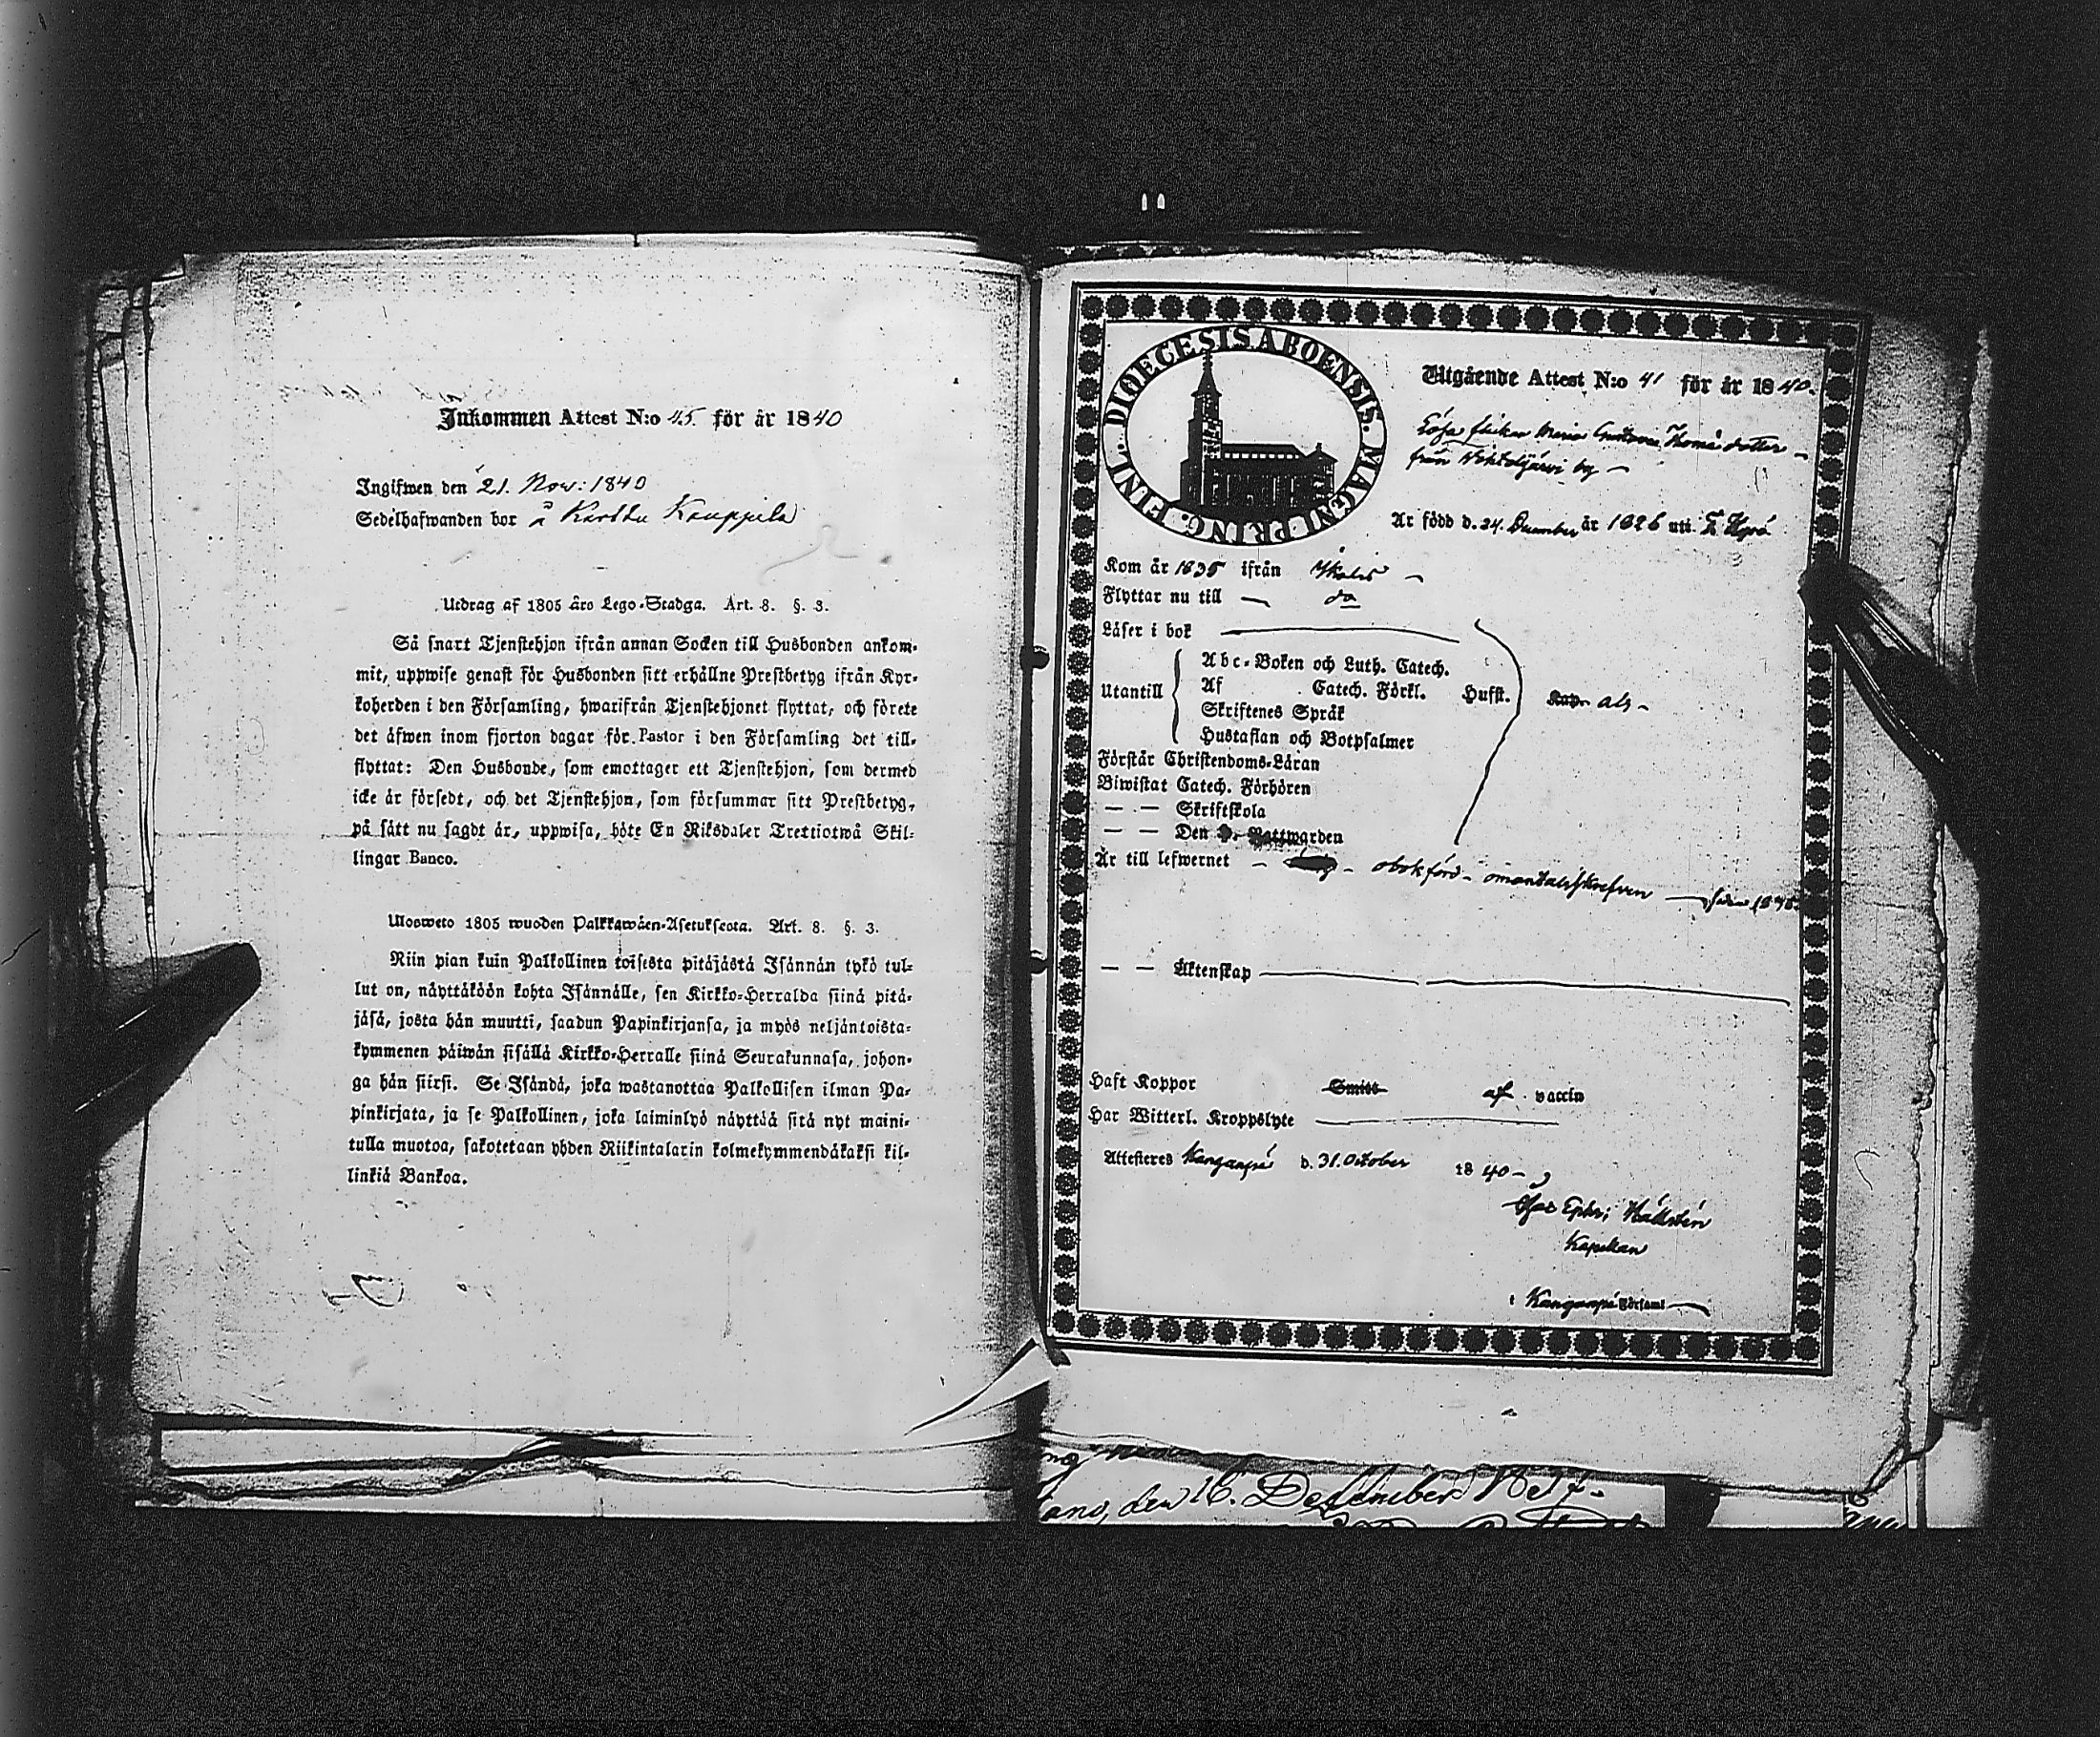 Inkommen Attest N:o 45. för år 1840
Ingifwen den 21. Nov: 1840
Sedelhafwanden bor å Karttu Kauppila
Utdrag af 1805 års Lego-Stadga. Art. 8. §. 3.
Så snart Tjenstehjon ifrån annan Socken till Husbonden ankom-
mit, uppwise genast för Husbonden sitt erhållne Prestbetyg ifrån Kyr-
koherden i den Församling, hwarifrån Tjenstehjonet flyttat, och förete
det äfwen inom fjorton dagar för Pastor i den Församling det till-
flyttat: Den Husbonde, som emottager ett Tjenstehjon, som dermed
icke är försedt, och det Tjenstehjon, som försummar sitt Prestbetyg,
på sätt nu sagdt är, uppwisa, böte En Riksdaler Trettiotwå Skil-
lingar Banco.
Ulosweto 1805 wuoden Palkkawäen-Asetuksesta. Art. 8. §. 3.
Niin pian kuin Palkollinen toisesta pitäjästä Isännän tykö tul-
lut on, näyttäköön kohta Isännälle, sen Kirkko-Herralda siinä pitä-
jäsä, josta hän muutti, saadun Papinkirjansa, ja myös neljäntoista-
kymmenen päiwän sisällä Kirkko-Herralle siinä Seurakunnasa, johon-
ga hän siirsi. Se Isändä, joka wastanottaa Palkollisen ilman Pa-
pinkirjata, ja se Palkollinen, joka laiminlyö näyttää sitä nyt maini-
tulla muotoa, sakotetaan yhden Riikintalarin kolmekymmendäkaksi kil-
lingiä Bankoa.
FINL. DIOECESIS ABOENSIS. MAGNI PRINC.
Utgående Attest N:o 41 för år 1840.
Lösa flickan Maria Gustava Thomædotter
från by
Är född d. 24. December år 1826 uti
Kom år 1835 ifrån Ikalis
Flyttar nu till do
Läser i bok
Utantill
Abc-Boken och Luth. Catech.
Af Catech. Förkl. Husst.
Skriftenes Språk
Hustaflan och Botpsalmer
Förstår Christendoms-Läran
Biwistat Catech. Förhören
— — Skriftskola
— — Den Nattwarden
Är till lefwernet — obokförd — omantalsskrefven
— — Äktenskap
Haft Koppor Smitt af vaccin
Har Witterl. Kroppslyte
Attesteres Kangaspä d. 31. October 1840
Hällsten
Kapellan
i Kangaspä Församl
den 16. December 1837.